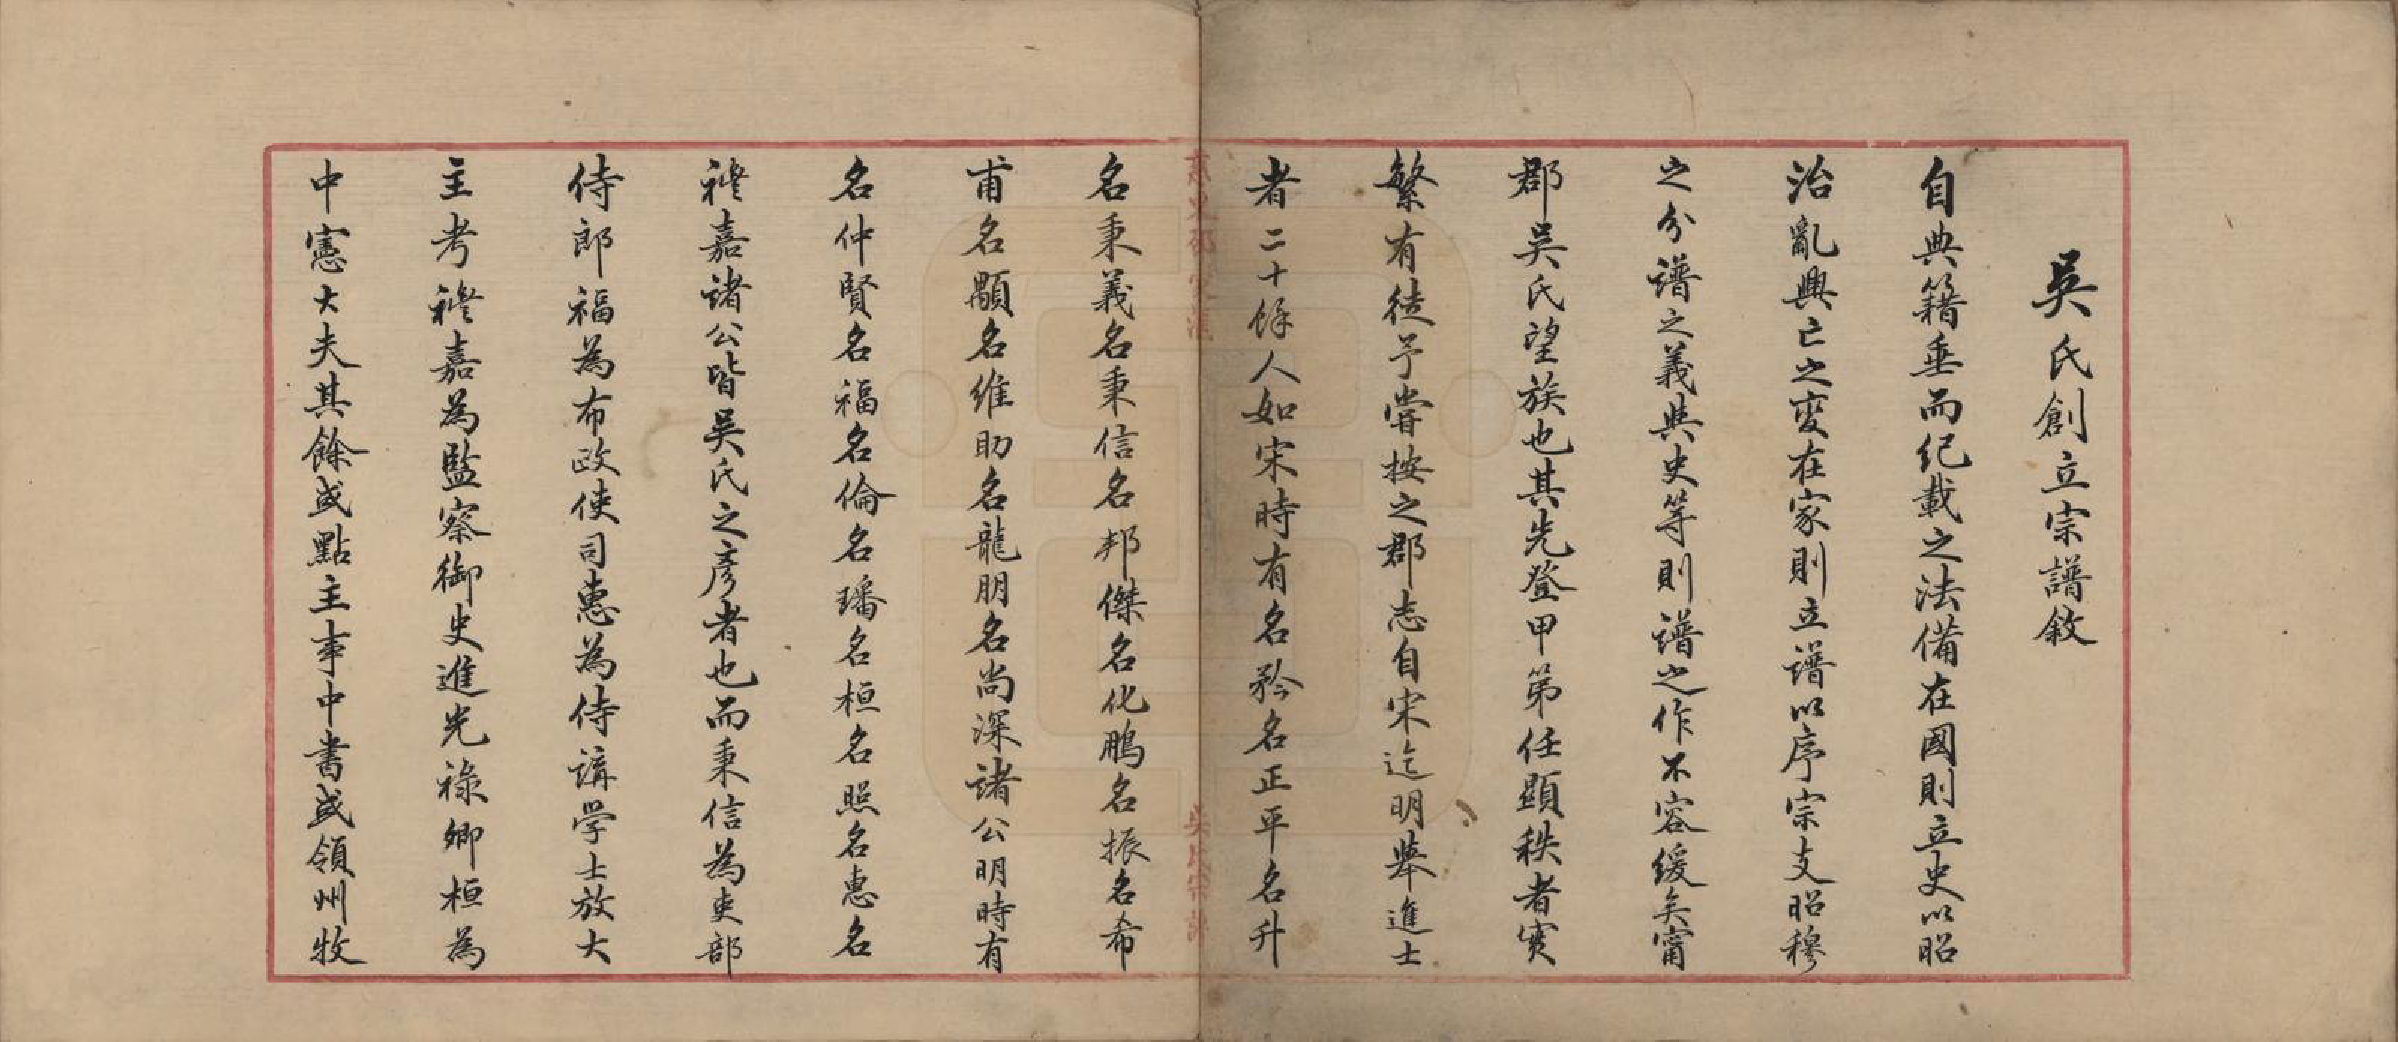 吳氏創立宗譜敘
自典籍垂而紀載之法備在國則立史以昭
治亂興亡之変在家則立譜以序宗支昭穆
之分譜之義與史等則譜之作不容緩矣甯
郡吳氏望族也其先登甲第任顯秩者寔
繁有徒予嘗按之郡志自宋迄明舉進士
者二十餘人如宋時有名矜名正平名升
名秉義名秉信名邦傑名化鵬名振名希
甫名顒名維助名龍朋名尚深諸公明時有
名仲賢名福名倫名璠名桓名照名惠名
禮嘉諸公皆吳氏之彥者也而秉信為吏部
侍郎福為布政使司惠為侍講学士放大
主考禮嘉為監察御史進光祿卿桓為
中憲大夫其餘或點主事中書或領州牧